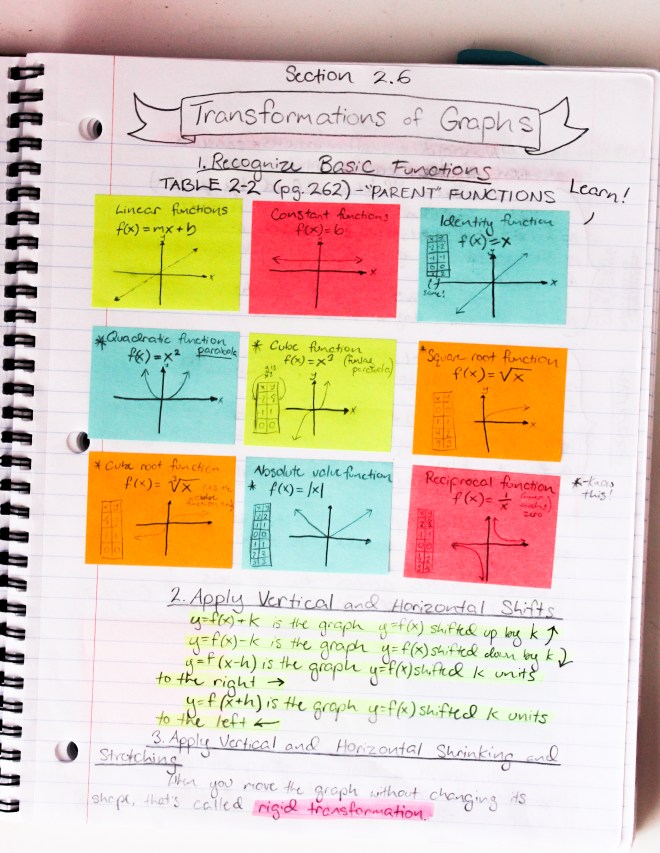 Section 2.6
Transformations of Graphs
1. Recognize Basic Functions
TABLE 2-2 (pg. 262) - "PARENT" FUNCTIONS
Learn!
Linear functions
f(x) = mx + b
y
x
Constant functions
f(x) = b
x
Identity function
f(x) = x
y
x
same!
*Quadratic function
f(x) = x² parabola
x
* Cube function
f(x) = x³
x
*Square root function
f(x) = √x
y
x
* Cube root function
f(x) = ∛x
x
Absolute value function
* f(x) = |x|
Reciprocal function
f(x) = 1/x
zero
x
*-know
this!
2. Apply Vertical and Horizontal Shifts
y=f(x)+k is the graph y=f(x) shifted up by k ↑
y=f(x)-k is the graph y=f(x) shifted down by k ↓
y=f(x-h) is the graph y=f(x) shifted k units
to the right →
y=f(x+h) is the graph y=f(x) shifted k units
to the left ←
3. Apply Vertical and Horizontal Shrinking and
Stretching
When you move the graph without changing its
shape, that's called rigid transformation.